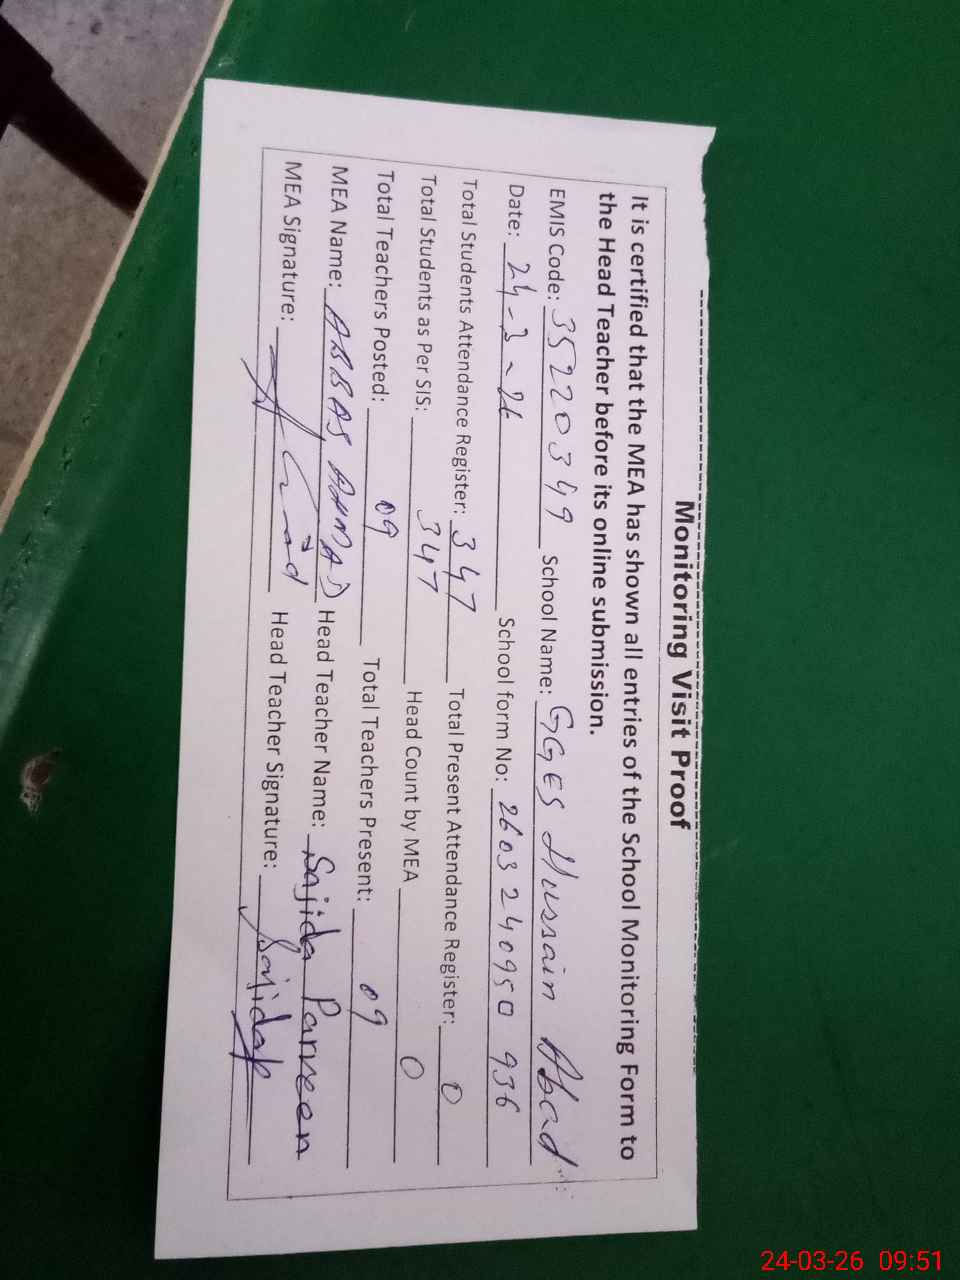 Monitoring Visit Proof
It is certified that the MEA has shown all entries of the School Monitoring Form to
the Head Teacher before its online submission.
EMIS Code: 35220349 School Name: GGES Hussain Abad
Date: 24-3-26 School form No: 2603240950936
Total Students Attendance Register: 347 Total Present Attendance Register: 0
Total Students as Per SIS: 347 Head Count by MEA 0
Total Teachers Posted: 09 Total Teachers Present: 09
MEA Name: ABBAS AHMAD Head Teacher Name: Sajida Parveen
MEA Signature: Head Teacher Signature: SajidaP
24-03-26 09:51